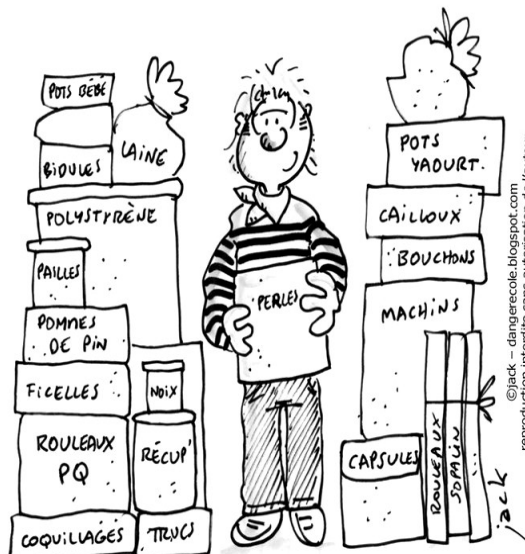 POTS BÉBÉ
LAINE
BIDULES
POLYSTYRÈNE
PAILLES
POMMES
DE PIN
FICELLES
NOIX
ROULEAUX
PQ
RÉCUP'
COQUILLAGES
TRUCS
PERLES
POTS
YAOURT
CAILLOUX
BOUCHONS
MACHINS
CAPSULES
ROULEAUX
SOPALIN
...
jack
©jack – dangerecole.blogspot.com